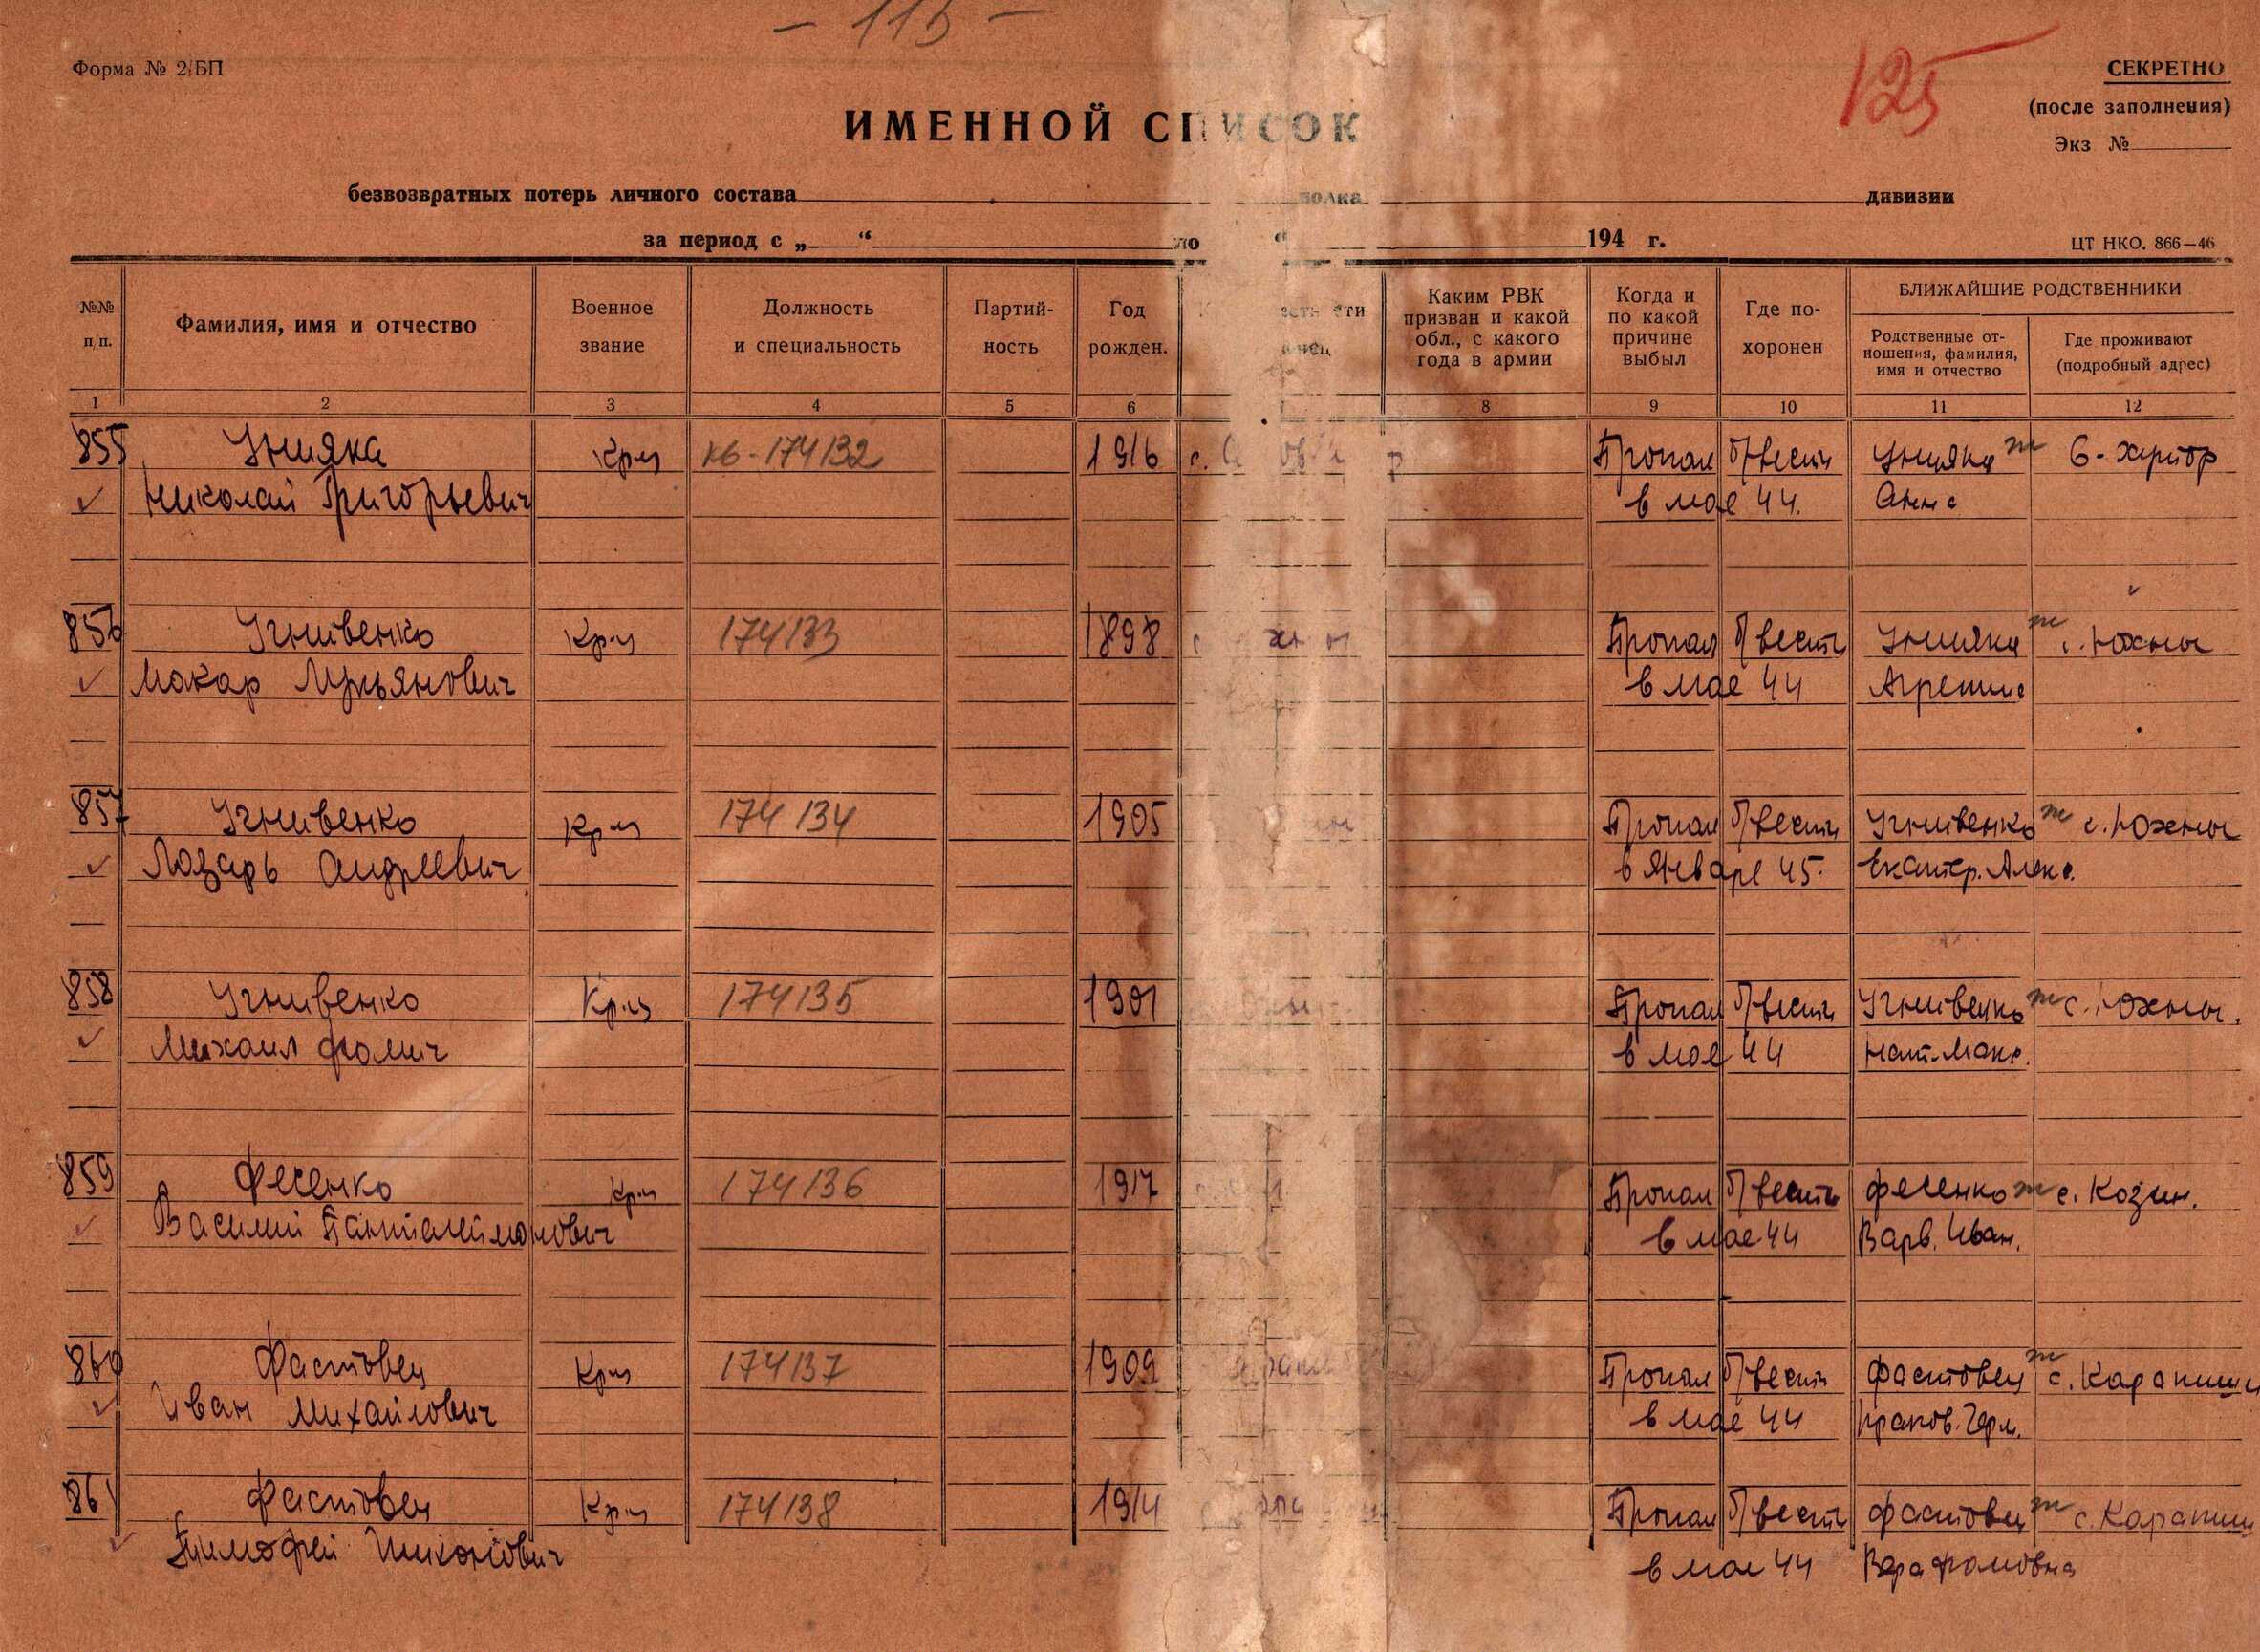 - 115 -
Форма № 2/БП
125
СЕКРЕТНО
(после заполнения)
Экз №
ИМЕННОЙ СПИСОК
безвозвратных потерь личного состава полка дивизии
за период с „ “ по “ 194 г.
ЦТ НКО. 866—46
№№ п/п.
Фамилия, имя и отчество
Военное звание
Должность и специальность
Партий-ность
Год рожден.
Каким РВК призван и какой обл., с какого года в армии
Когда и по какой причине выбыл
Где по-хоронен
БЛИЖАЙШИЕ РОДСТВЕННИКИ
Родственные от-ношения, фамилия, имя и отчество
Где проживают (подробный адрес)
1 2 3 4 5 6 8 9 10 11 12
855 Крц кв-174132 1916 Пропал б/вести ж
Николай Григорьевич в мае 44. Анна
856 Угнивенко Крц 174133 1898 Пропал б/вести ж с. Южны
Макар Лукьянович в мае 44
857 Угнивенко Крц 174134 1905 Пропал б/вести Угнивенко ж с. Южны
Лазарь Андреевич в январе 45. Екатер. Алекс.
858 Угнивенко Крц 174135 1901 Пропал б/вести Угнивенко ж с. Южны.
Михаил Фомич в мае 44 Нат. Макс.
859 Фесенко Крц 174136 1917 Пропал б/вести Фесенко ж с. Козин.
Василий Пантилеймонович в мае 44 Варв. Иван.
860 Фастовец Крц 174137 1909 Пропал б/вести Фастовец ж с. Карапиши
Иван Михайлович в мае 44
861 Фастовец Крц 174138 1914 Пропал б/вести Фастовец ж с. Карапиши
Тимофей Никонович в мае 44 Вера Фомовна